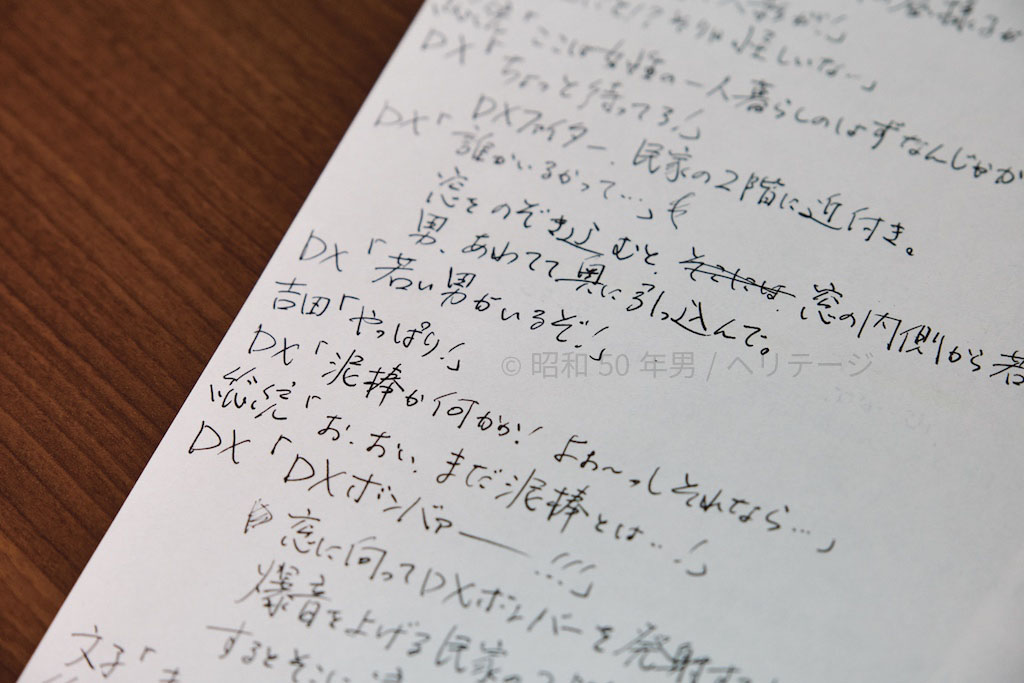 人影が!」
怪しいな…」
DX「ここは女性の一人暮らしのはずなんじゃが
ちょっと待ってろ!」
DXファイター、民家の2階に近付き。
DX「誰がいるかって…」
窓をのぞき込むと、そこには 窓の内側から若
男、あわてて奥に引っ込んで。
DX「若い男がいるぞ!」
吉田「やっぱり!」
DX「泥棒か何かか! よぉ〜っしそれなら…」
総統「お、おい、まだ泥棒とは…!」
DX「DXボンバァー──!!!」
窓に向ってDXボンバーを発射する
爆音を上げる民家の2階
するとそこに
文子「
© 昭和 50 年男 / ヘリテージ